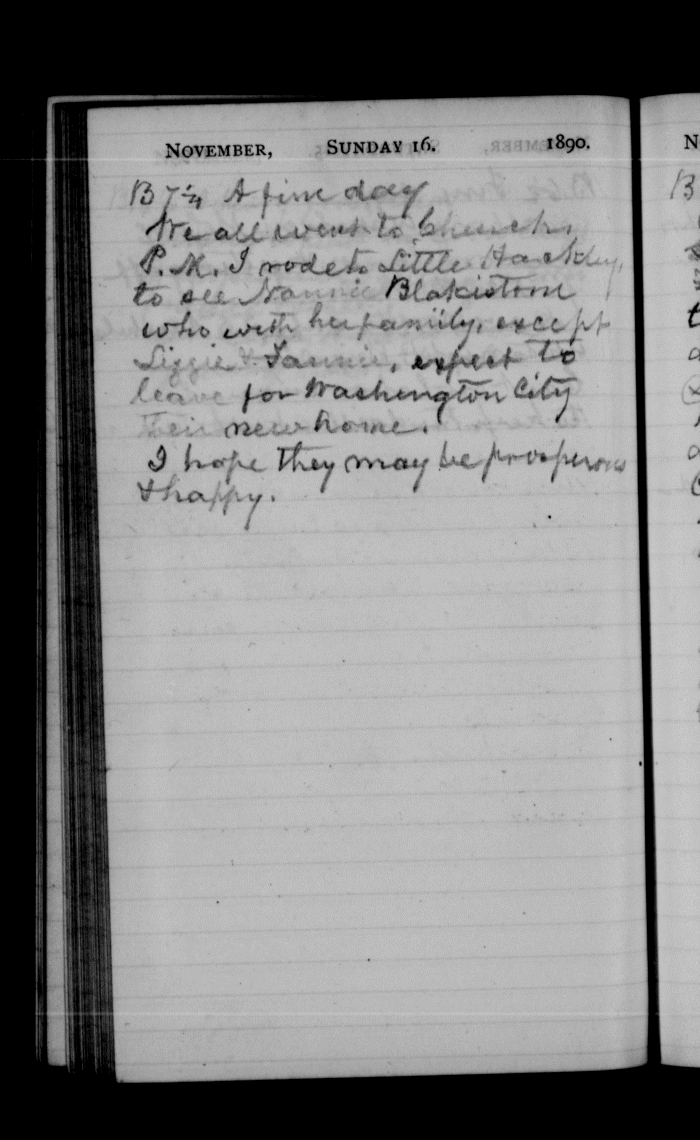 NOVEMBER, SUNDAY 16. 1890.
B 7 1/4 A fine day
We all went to Church.
P.M. I rode to Little Hackley,
to see Nannie Blakistone
who with her family, except
Lizzie & Fannie, expect to
leave for Washington City
their new home.
I hope they may be prosperous
& happy.